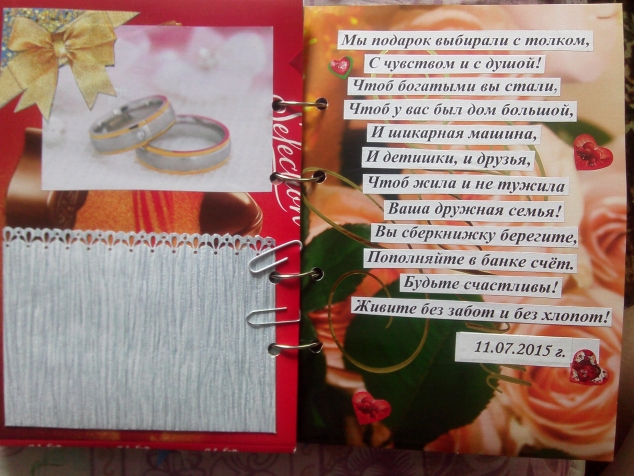 Selection
Мы подарок выбирали с толком,
С чувством и с душой!
Чтоб богатыми вы стали,
Чтоб у вас был дом большой,
И шикарная машина,
И детишки, и друзья,
Чтоб жила и не тужила
Ваша дружная семья!
Вы сберкнижку берегите,
Пополняйте в банке счёт.
Будьте счастливы!
Живите без забот и без хлопот!
11.07.2015 г.